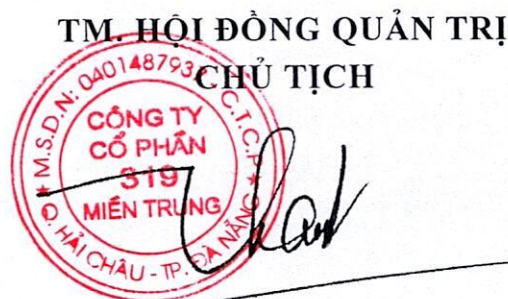 TM. HỘI ĐỒNG QUẢN TRỊ
CHỦ TỊCH
M.S.D.N: 040148793 C.T.C.P
CÔNG TY
CỔ PHẦN
319
MIỀN TRUNG
Q. HẢI CHÂU - TP. ĐÀ NẴNG